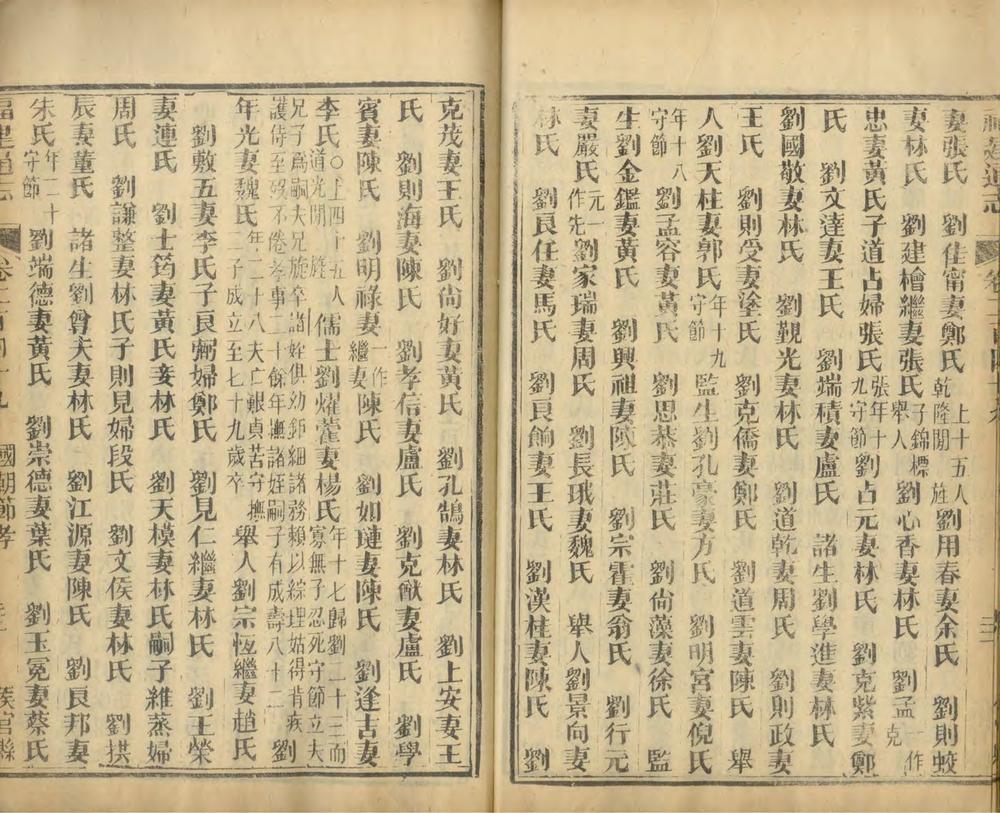 妻張氏　劉佳甯妻鄭氏上十五人乾隆閒旌劉用春妻余氏　劉則蛟
妻林氏　劉建檜繼妻張氏子錦標舉人劉心香妻林氏　劉孟一作克
忠妻黃氏子道占婦張氏張年十九守節劉占元妻林氏　劉克紫妻鄭
氏　劉文達妻王氏　劉端積妻盧氏　諸生劉學進妻林氏
劉國敬妻林氏　劉觀光妻林氏　劉道乾妻周氏　劉則政妻
王氏　劉則受妻塗氏　劉克僑妻鄭氏　劉道雲妻陳氏　舉
人劉天柱妻郭氏年十九守節監生劉孔豪妻方氏　劉明宮妻倪氏
年十八守節劉孟容妻黃氏　劉思恭妻莊氏　劉尙藻妻徐氏　監
生劉金鑑妻黃氏　劉興祖妻陳氏　劉宗霍妻翁氏　劉行元
妻嚴氏元一作先劉家瑞妻周氏　劉長珴妻魏氏　舉人劉景向妻
林氏　劉良任妻馬氏　劉良餉妻王氏　劉漢桂妻陳氏　劉
克茂妻王氏　劉尙好妻黃氏　劉孔鵠妻林氏　劉上安妻王
氏　劉則海妻陳氏　劉孝信妻盧氏　劉克猷妻盧氏　劉學
賓妻陳氏　劉明祿妻一作繼妻陳氏　劉如璉妻陳氏　劉逢吉妻
李氏〇上四十五人道光閒旌儒士劉燿藿妻楊氏年十七歸劉二十三而寡無子忍死守節立夫
兄子爲嗣夫兄旋卒諸姪俱幼鉅細諸務賴以綜理姑得肯疾護侍至歿不倦孝事二十餘年撫諸姪嗣子有成壽八十二劉
年光妻魏氏年二十八夫亡艱貞苦守撫二子成立至七十九歲卒舉人劉宗恆繼妻趙氏
劉敷五妻李氏子良弼婦鄭氏　劉見仁繼妻林氏　劉王榮
妻連氏　劉士筠妻黃氏妾林氏　劉天模妻林氏嗣子維蒸婦
周氏　劉謙整妻林氏子則見婦段氏　劉文侯妻林氏　劉拱
辰妻董氏　諸生劉曾夫妻林氏　劉江源妻陳氏　劉良邦妻
朱氏年二十守節劉端德妻黃氏　劉崇德妻葉氏　劉玉冕妻蔡氏
福建通志　卷二百四十九　國朝節孝　侯官縣